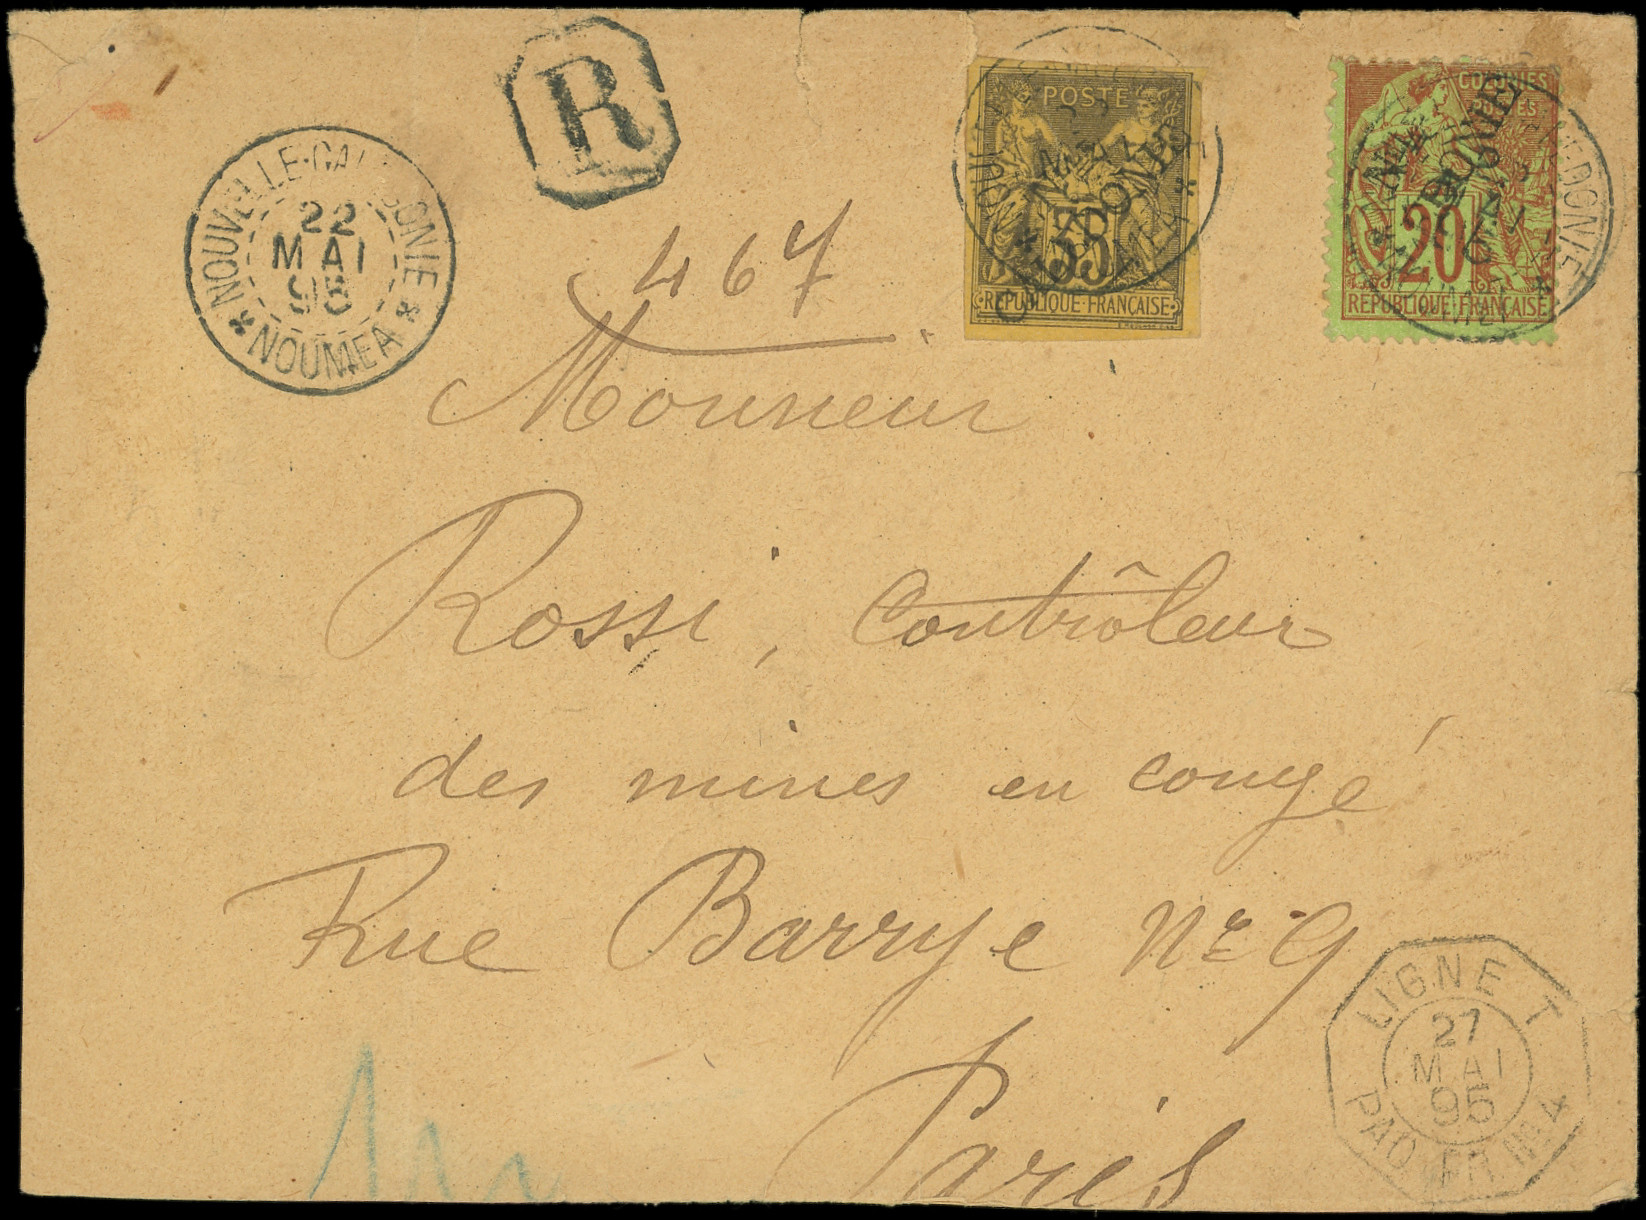 R
NOUVELLE-CALEDONIE
22
MAI
95
* NOUMEA *
467
POSTE
35
REPUBLIQUE FRANÇAISE
COLONIES
POSTES
20
REPUBLIQUE FRANÇAISE
Monsieur
Rossi, Contrôleur
des mines en congé
Rue Barrye No 9
Paris
LIGNE T
27
MAI
95
PAQ. FR. No 4